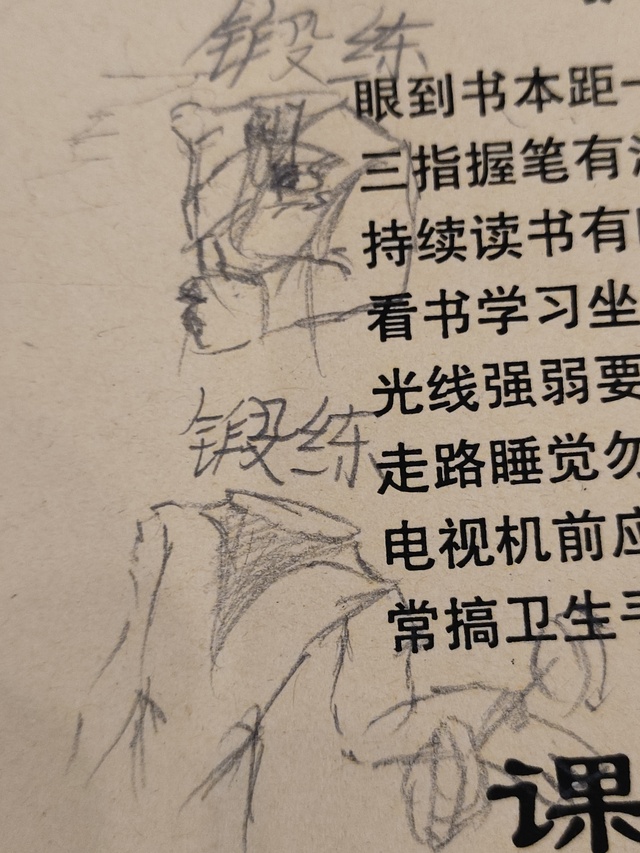 锻练
眼到书本距一
三指握笔有
持续读书有
看书学习坐
光线强弱要
锻练
走路睡觉勿
电视机前应
常搞卫生手
课